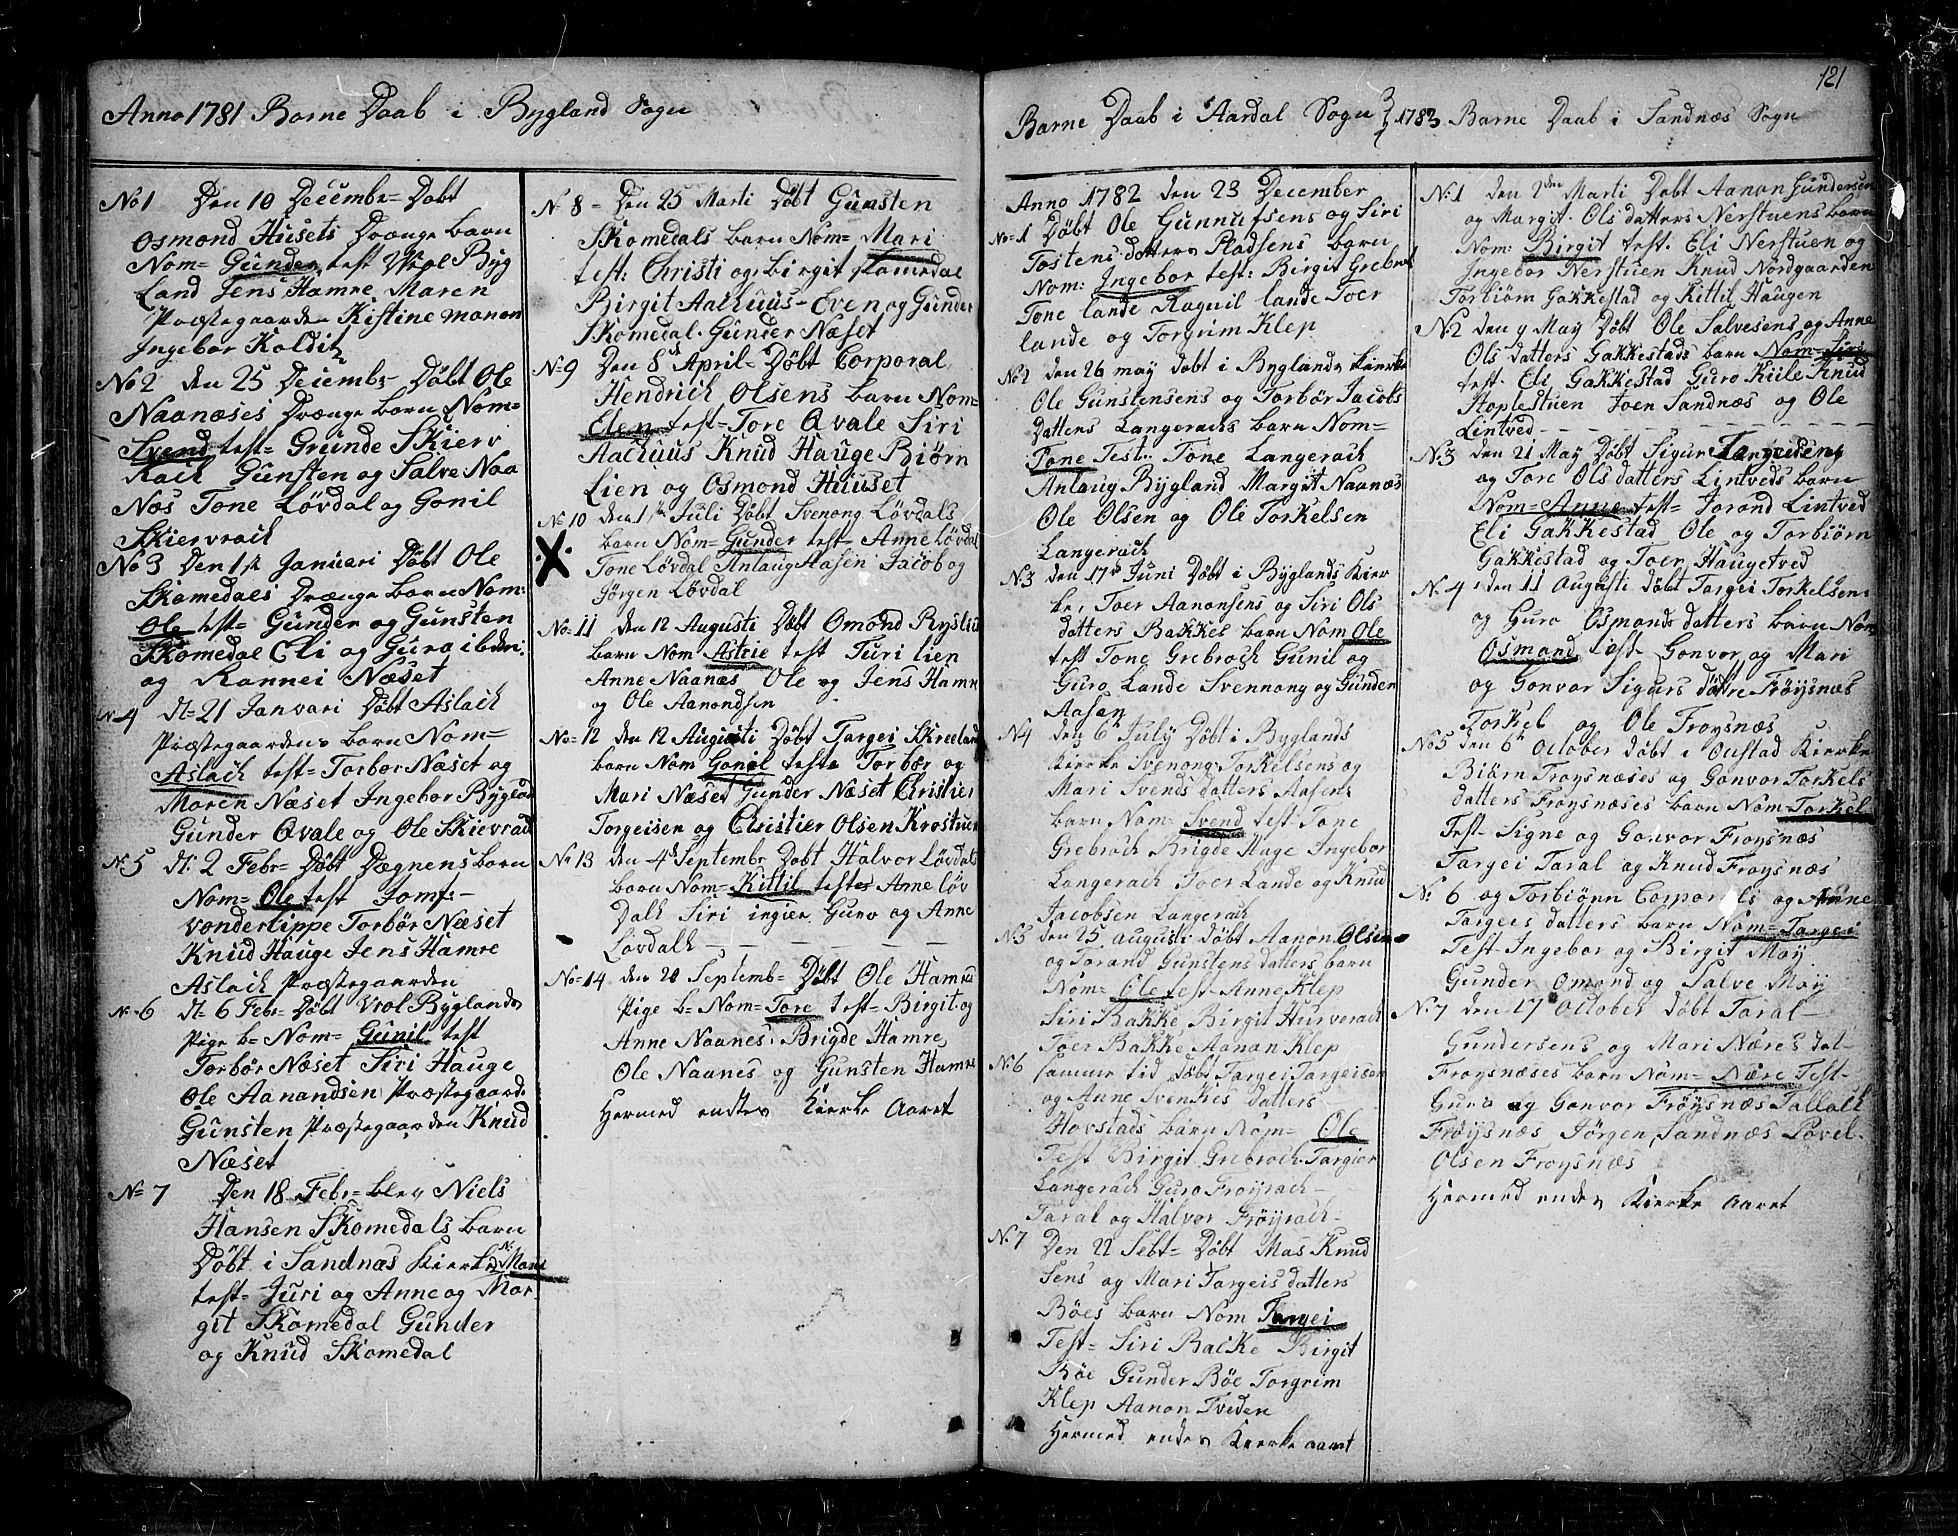 Anno 1781 Barne Daab i Bygland Sogn
No 1 Den 10 Decembr= Døbt
Osmond Husets Drænge barn
Nom= Gunder test Vrol Byg
Land Jens Hamre Maren
Præstegaarden Kistine monon
Ingebor Kolditz
No 2 den 25 Decembr= Døbt Ole
Naanæses Drænge barn Nom=
Svend test= Grunde Skierv
Rach Gunsten og Salve Naa
Næs Tone Lövdal og Gonil
Skiervrach
No 3 Den 1te Januari Døbt Ole
Skomedals Drænge barn Nom:
Ole test= Gunder og Gunsten
Skomedal Eli og Guro ibden:
og Rannei Næset
N=4 d= 21 Januari Døbt Aslach
Præstegaardens barn Nom=
Aslach test= Torbor Næset og
Moren Næset Ingebor Bygland
Gunder Qvale og Ole Skievrad
N:5 d: 2 Febr= Døbt Dægnens barn
Nom= Ole test Jomf:-
vonderlippe Torbør Næset
Knud Hauge Jens Hamre
Aslach Præstegaarden
N=6 d= 6 Febr= Døbt Vrol Byglands
pige b= Nom= Gunil test
Torbør Næset Siri Hauge
Ole Aanandsen Præstegaard.
Gunsten Præstegaarden Knud
Næset
N=7 Den 18 Febr= blev Niels
Hansen Skomedals barn
Døbt i Sandnæs Kierke N: Mari
test= Juri og Anne og Mar
git Skomedal Gunder
og Knud Skomedal
N: 8 = Den 25 Marti Døbt Gunsten
Skomedals barn Nom= Mari
test: Christi og Birgit Skomedal
Birgit Aachuus= Even og Gunder
Skomedal. Gunder Næset
N=9 Den 8de April= Døbt Corporal
Hendrich Olsens barn Nom=
Elen test= Tore Qvale Siri
Aachuus Knud Hauge Biörn
Lien og Osmond Huuset
No 10 den 1te Juli Døbt Svenong Lövdals
barn Nom= Gunder test= Anne Lövdal
X Tone Lövdal Anlaug Aasen Jacob og
Jörgen Lövdal
No=11 den 12 Augusti Døbt Omond
barn Nom Astrie test Turi lien
Anne Naanæs Ole og Jens Hamre
og Ole Aanondsen
No=12 den 12 Augusti Døbt Targei Skreeland
barn Nom Gonil test= Torbør og
Mari Næset Gunder Næset Christier
Torgeisen og Christier Olsen Krostuen
No 13 den 4de Septembr Døbt Halvor Lövdals
barn Nom= Kittil testes Anne löv
Dalk Siri ingier Guro og Anne
Lövdalk
No=14 den 20 Septemb= Døbt Ole Hamres
Pige b= Nom= Tore test= Birgit og
Anne Naanes. Brigde Hamre
Ole Naanes og Gunsten Hamre
Hermed endtes Kierke Aaret
121
Barne Daab i Aardal Sogn
Anno 1782 den 23 December
No=1 Døbt Ole Gunnufsens og Siri
Tostens datters Pladsens barn
Nom: Ingebor test: Birgit Grebrok
Tone lande Ragnil lande Toer
lande og Torgrim Klep
No2 den 26 may døbt i Byglands kierke
Ole Gunstensens og Torbör Jacobs
Datters Langerachs barn Nom=
Tone Test.. Tone Langerach
Anlaug Bygland Margit Naanæs
Ole Olsen og Ole Torkelsen
Langerach
N:3 den 17de Juni Døbt i Byglands Kier
ke, Toer Aanonsens og Siri Ols
datters Bakkes barn Nom Ole
test Tone Grebroch Gunil og
Guro Lande Svennong og Gunder
Aasen
N4 den 6te July Døbt i Byglands
Kierke Svenong Torkelsens og
Mari Svends datters Aasens
barn Nom= Svend test= Tone
Grebroch Brigde Hage Ingebor
Langerach Toer Lande og Knud
Jacobsen Langerach
N:5 den 25 augusti döbt Aanon Olsens
og Torand Gunstens datters barn
Nom= Ole test= Anne Klep
Siri Bakke Birgit Hurverach
Toer Bakke Aanon Klep
N:6 samme tid døbt Targei Targeisen
og Anne Svenkes datters
Hovstads barn Nom= Ole
Test Birgit Grebroch Targier
Langerach Guro Fröyrach
Taral og Halvor Fröyrach.
N:7 Den 22 Sebt= Døbt Mas Knud
Sens og Mari Targeis datters
Böes barn Nom Targei
Test= Siri Bakke Birgit
Böe Gunder Böe Torgrim
Klep Aanon Tveden
Hermed endes Kierke aaret
1783 Barne Daab i Sandnæs Sogn
N:1 den 2den Marti Døbt Aanon Gundersen
og Margit Ols datters Nerstuens barn
Nom: Birgit test. Eli Nerstuen og
Ingebor Nerstuen Knud Nordgaarden
Torbiörn Gakkestad og Kittil Haugen
N:2 den 9 May Døbt Ole Salvesens og Anne
Ols datters Gakkestads barn Nom= Siri
test. Eli Gakkestad Guro Kiile Knud
Stoplestuen Joen Sandnæs og Ole
Lintved
N:3 den 21 May Døbt Sigur Targeisens
og Tore Ols datters Lintveds barn
Nom= Anne test= Jorand Lintved
Eli Gakkestad Ole og Torbiörn
Gakkestad og Toer Haugetved
N:4 den 11 Augusti döbt Targei Torkelsens
og Guro Osmonds datters barn Nom
Osmond test= Gonvor og Mari
og Gonvor Sigurs döttre Fröysnæs
Torkel og Ole Froysnæs
No5 den 6te October döbt i Oustad Kierke
Biörn Froysnæses og Gonvor Torkels
datters Fröysnæses barn Nom= Torkel
Test= Signe og Gonvor Froysnæs
Targei Taral og Knud Froysnæs
N: 6 og Torbiönn Corporals og Anne
Targeis datters barn Nom= Targei
Test= Ingebor og Birgit Möy
Gunder Omond og Salve Möy
N:7 den 17 October döbt Taral
Gundersens og Mari Næres dat=
Froysnæses barn Nom= Nære Test=
Guro og Gonvor Fröysnæs Tallach
Fröysnæs Jörgen Sandnæs Lovel
Olsen Froysnæs
Hermed endes Kierke aaret